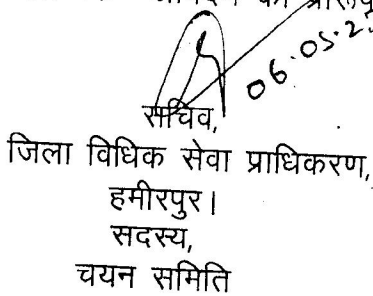 का प्रारूप
06.05.2
सचिव,
जिला विधिक सेवा प्राधिकरण,
हमीरपुर।
सदस्य,
चयन समिति